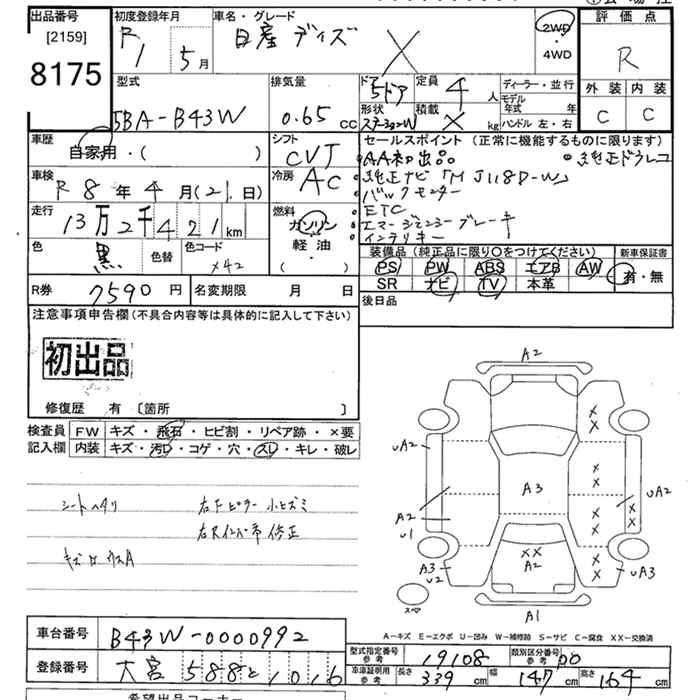 出品番号
[2159]
8175
初度登録年月
R 1 5月
車名・グレード
日産 デイズ X
2WD
・
4WD
評価点
R
外装 内装
C C
型式
5BA-B43W
排気量
0.65 cc
ドア
5ドア
形状
定員
4 人
積載
X kg
ディーラー・並行
モデル年式 年
ハンドル 左・右
車歴
自家用・( )
シフト
CVT
車検
R 8年4月(21日)
冷房
AC
走行
13万2千421km
燃料
ガソリン
軽油・
( )
色
黒
色替
色コード
X42
R券
7590円
名変期限 月 日
セールスポイント (正常に機能するものに限ります)
AA初出品 純正ドラレコ
純正ナビ「MJ118D-W」
バックモニター
ETC
エマージェンシーブレーキ
インテリキー
装備品 (純正品に限り〇をつけてください)
PS PW ABS エアB AW
SR ナビ TV 本革
新車保証書
有・無
後日品
注意事項申告欄(不具合内容等は具体的に記入して下さい)
初出品
修復歴 有 〔箇所 〕
検査員 FW キズ・飛石・ヒビ割・リペア跡・×要
記入欄 内装 キズ・汚れ・コゲ・穴・スレ・キレ・破レ
シートヘタリ 右Fピラー 小ヒズミ
右Rインパネ 修正
A2
X
X
UA2
A3
X
X
UA2
A2
U1
X
X
X
X
XX
A2
A3
U2
X
X
UA3
スペア
A1
A-キズ E-エクボ U-凹み W-補修跡 S-サビ C-腐食 XX-交換済
車台番号
B43W-0000992
登録番号
大宮 588 と 1016
型式指定番号
参考
19108
類別区分番号
参考
車車証明用
参考
長さ 339 cm
幅 147 cm
高さ 164 cm
希望出品コーナー